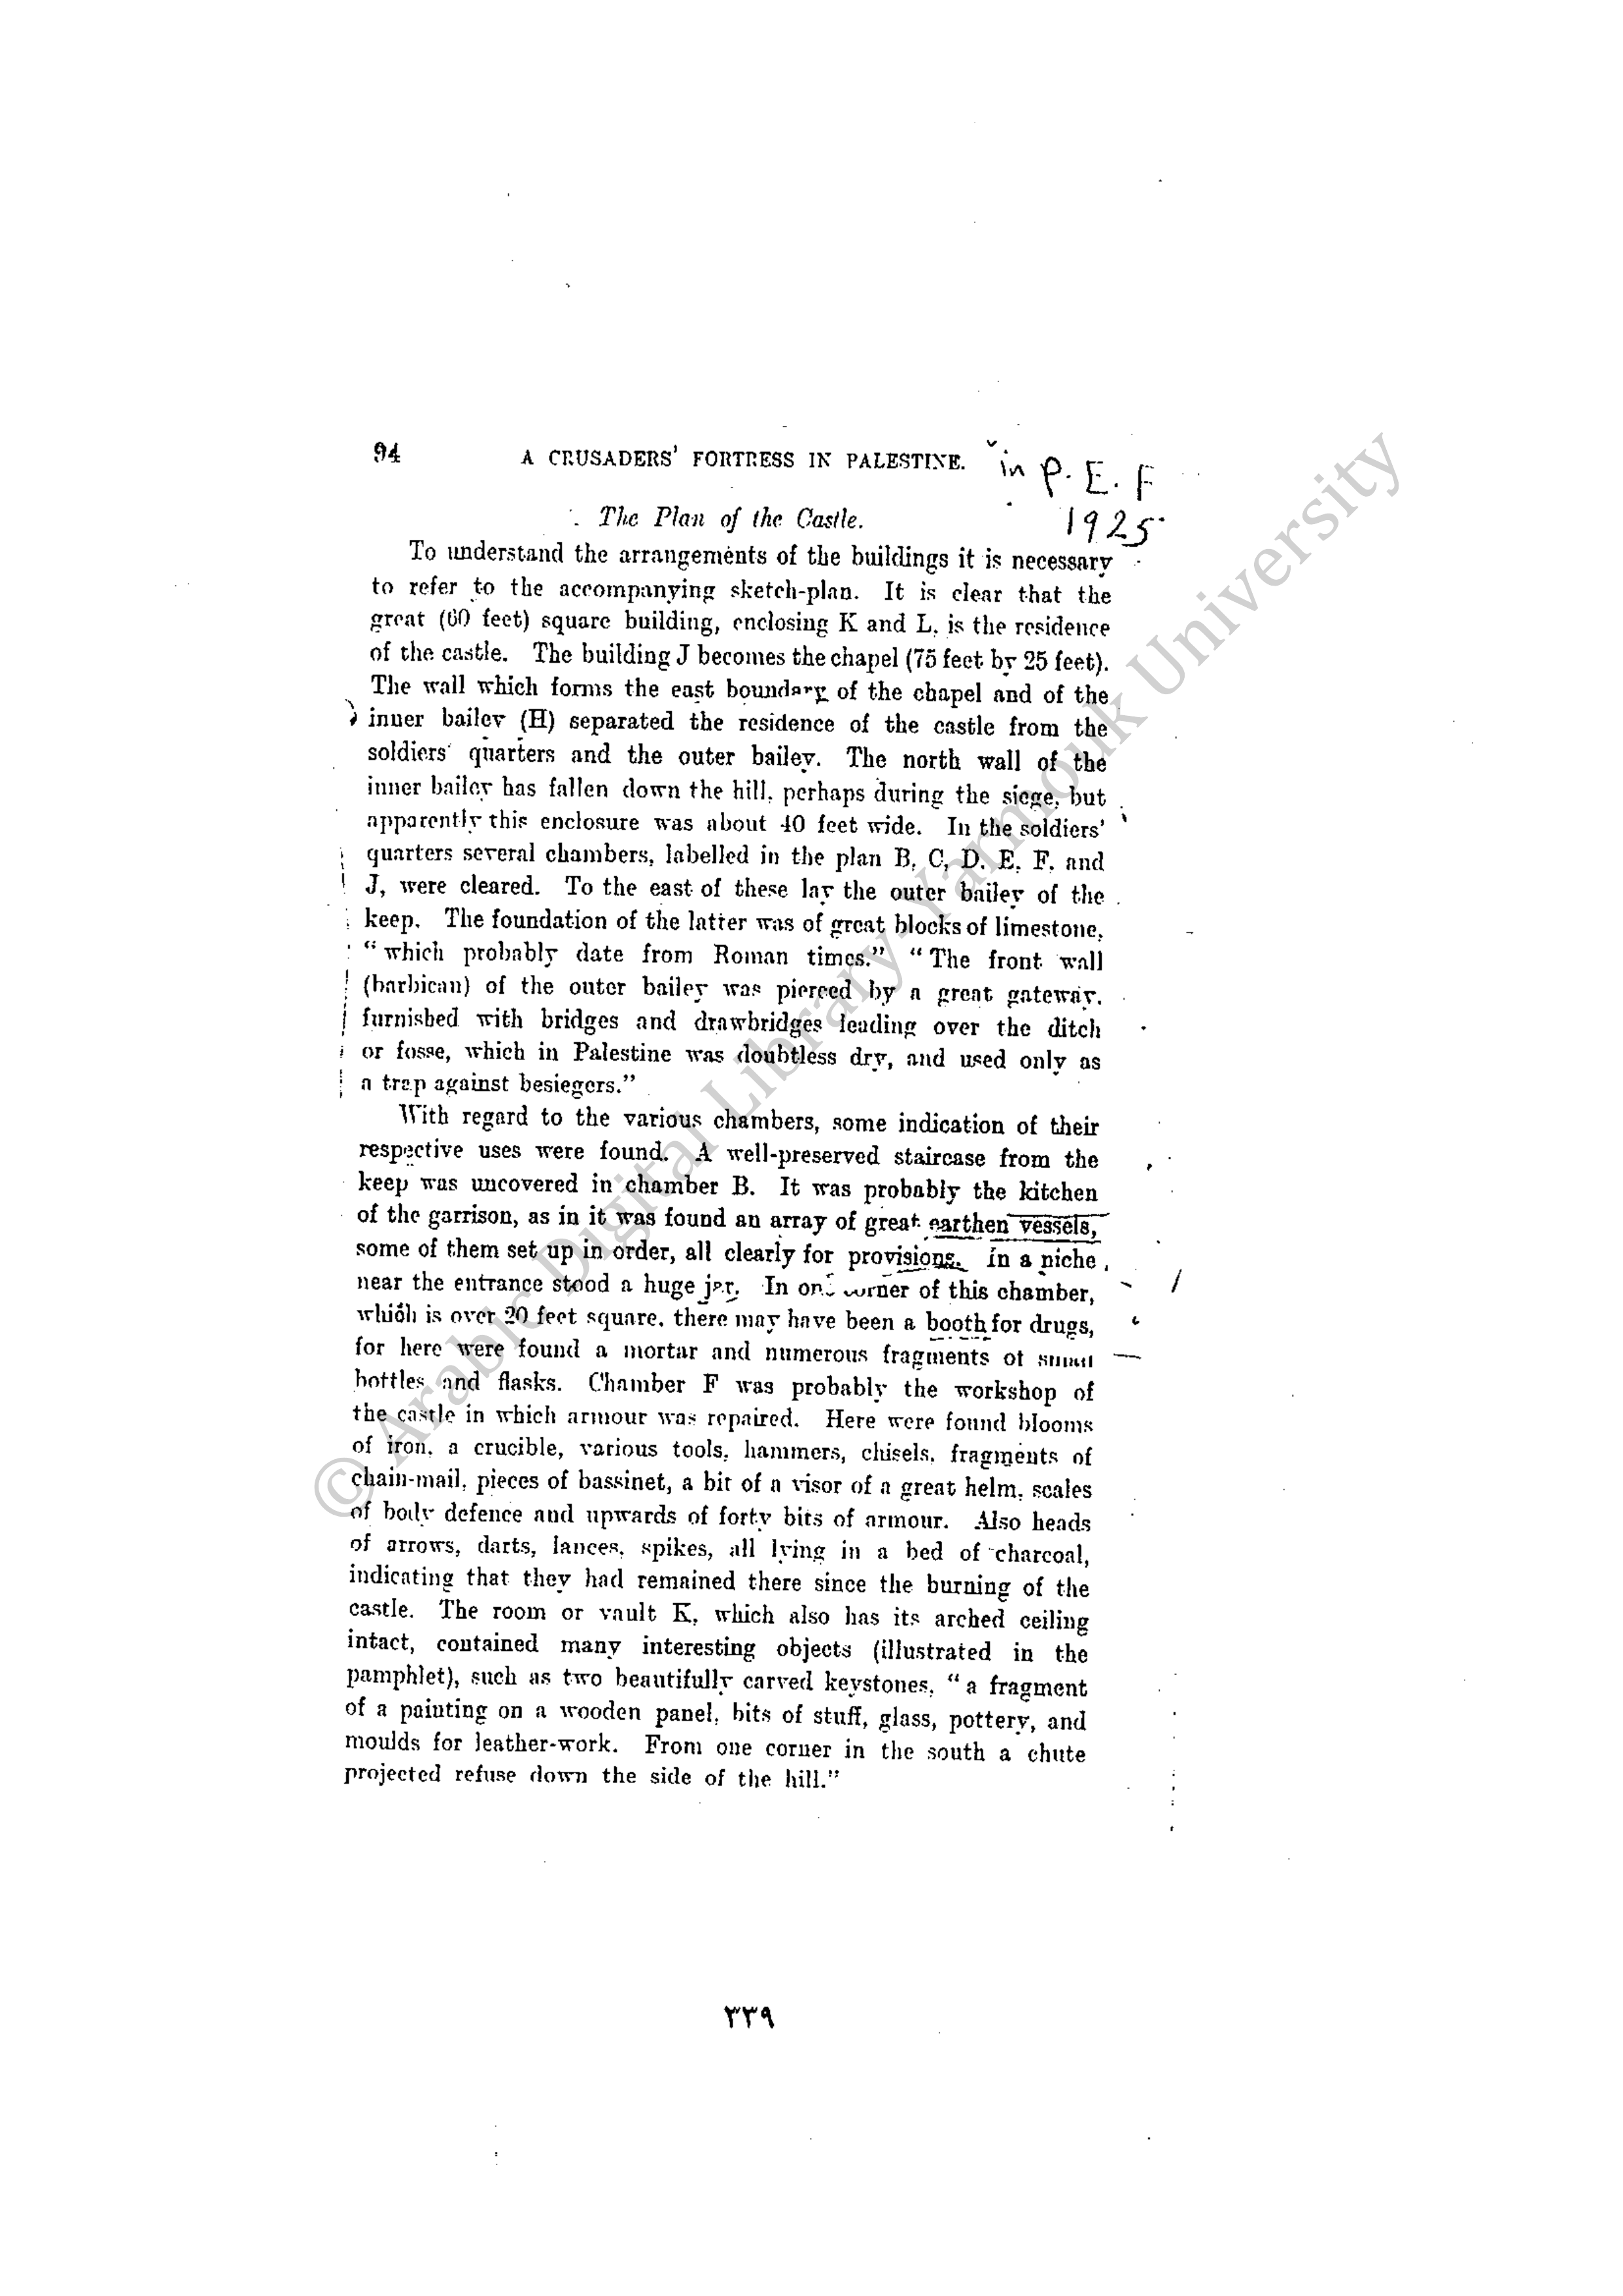 94 A CRUSADERS' FORTRESS IN PALESTINE. in P. E. F
1925
The Plan of the Castle.
To understand the arrangements of the buildings it is necessary
to refer to the accompanying sketch-plan. It is clear that the
great (60 feet) square building, enclosing K and L, is the residence
of the castle. The building J becomes the chapel (75 feet by 25 feet).
The wall which forms the east boundary of the chapel and of the
inner bailey (H) separated the residence of the castle from the
soldiers' quarters and the outer bailey. The north wall of the
inner bailey has fallen down the hill, perhaps during the siege, but
apparently this enclosure was about 40 feet wide. In the soldiers'
quarters several chambers, labelled in the plan B, C, D, E, F, and
J, were cleared. To the east of these lay the outer bailey of the
keep. The foundation of the latter was of great blocks of limestone,
"which probably date from Roman times." "The front wall
(barbican) of the outer bailey was pierced by a great gateway,
furnished with bridges and drawbridges leading over the ditch
or fosse, which in Palestine was doubtless dry, and used only as
a trap against besiegers."
With regard to the various chambers, some indication of their
respective uses were found. A well-preserved staircase from the
keep was uncovered in chamber B. It was probably the kitchen
of the garrison, as in it was found an array of great earthen vessels,
some of them set up in order, all clearly for provisions. In a niche
near the entrance stood a huge jar. In one corner of this chamber,
which is over 20 feet square, there may have been a booth for drugs,
for here were found a mortar and numerous fragments of small
bottles and flasks. Chamber F was probably the workshop of
the castle in which armour was repaired. Here were found blooms
of iron, a crucible, various tools, hammers, chisels, fragments of
chain-mail, pieces of bassinet, a bit of a visor of a great helm, scales
of body defence and upwards of forty bits of armour. Also heads
of arrows, darts, lances, spikes, all lying in a bed of charcoal,
indicating that they had remained there since the burning of the
castle. The room or vault K, which also has its arched ceiling
intact, contained many interesting objects (illustrated in the
pamphlet), such as two beautifully carved keystones, "a fragment
of a painting on a wooden panel, bits of stuff, glass, pottery, and
moulds for leather-work. From one corner in the south a chute
projected refuse down the side of the hill."
٣٣٩
© Arabic Digital Library-Yarmouk University